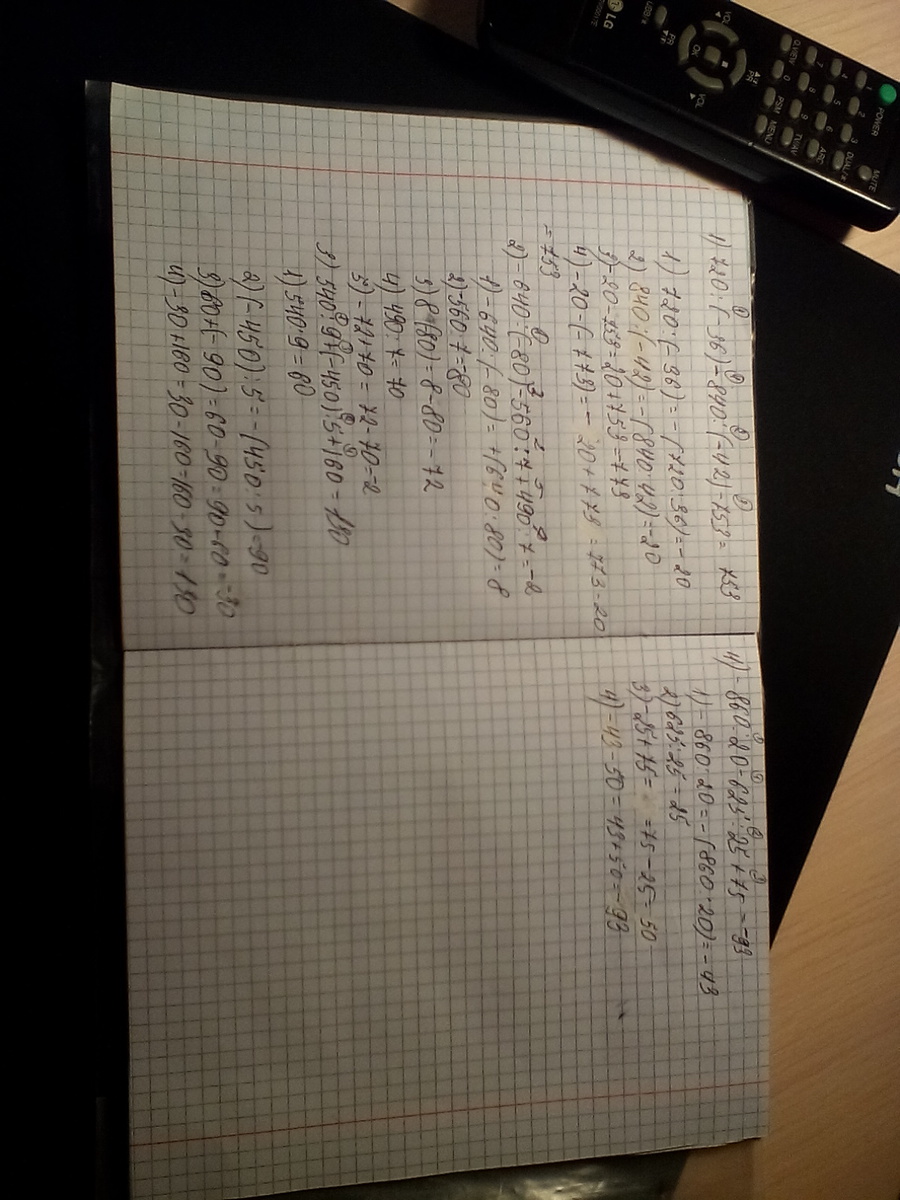 1) 720:(-36)-840:(-42)-753= 753
1) 720:(-36)=-(720:36)=-20
2) 840:(-42)=-(840:42)=-20
3)-20-753=20+753=773
4)-20-(-773)=-20+773=773-20
=753
2)-640:(-80)-560:7+490:7=-2
1)-640:(-80)=+(640:80)=8
2)-560:7=80
3) 8-(80)=8-80=-72
4) 490:7=70
5)-72+70=72-70=2
3) 540:9+(-450):5+160=130
1) 540:9=60
2)(-450):5=-(450:5)=90
3) 60+(-90)=60-90=90-60=-30
4)-30+160=30-160=160-30=130
4)-860:20-625:25+75=-93
1)-860:20=-(860:20)=-43
2) 625:25=25
3)-25+75= =75-25=50
4)-43-50=43+50=-93
POWER
MUTE
1 2 3
4 5 6
7 8 9
0
DUAL/X
ARC
Q.VIEW
TV/AV
PSM
MENU
OK
VOL
VOL
PR
PR
USB
LG